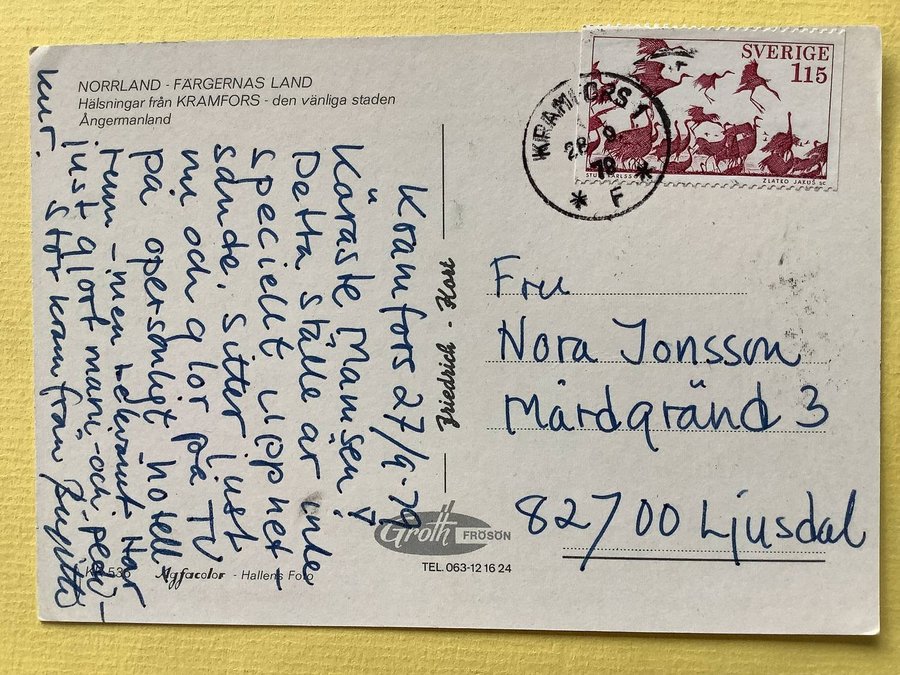 NORRLAND - FÄRGERNAS LAND
Hälsningar från KRAMFORS - den vänliga staden
Ångermanland
Kramfors 27/9-79
Käraste Mamsen!
Detta ställe är inte
speciellt upphet-
sande. Sitter just
nu och glor på TV
på opersonligt hotell-
rum - men relevant Har
just gjort mani- och pedi-
kur. Stor kram från Birgitta
Friedrich - Kort
Groth FRÖSÖN
TEL. 063-12 16 24
Agfacolor - Hallens Foto
SVERIGE
115
ZLATKO JAKUŠ SC
KRAMFORS 1
28 9
79
* F *
Fru
Nora Jonsson
Mårdgränd 3
82700 Ljusdal